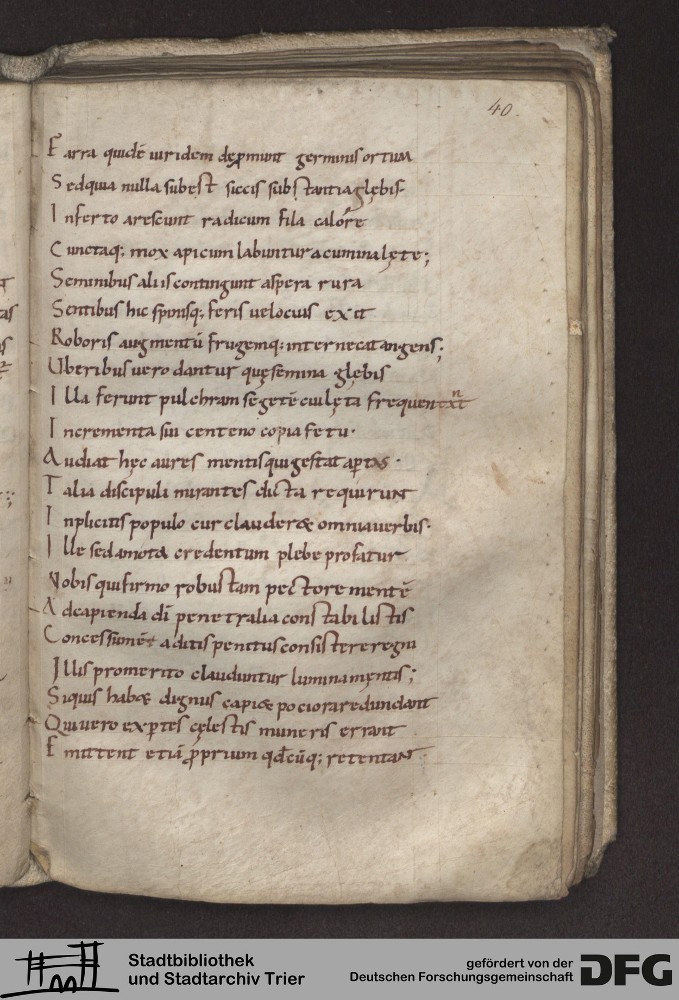 40.
Farra quidē uiridem depromunt germinis ortum
Sed quia nulla subest succis substantia glębis.
Inferto arescunt radicum fila calore
Cunctaq; mox apicum labuntur acumina lęte;
Seminibus aliis contingunt aspera rura
Sentibus hic spinisq; feris uelocius exit
Roboris augmentū frugemq; internecat angens;
Uberibus uero dantur quę semina glębis
Illa ferunt pulchram segetē cui lęta frequentat
Incrementa sui centeno copia fetu.
Audiat hęc aures mentis qui gestat apertas.
Talia discipuli mirantes dicta requirunt
Inplicitis populo cur clauderet omnia uerbis.
Ille sed amota credentum plebe profatur
Nobis qui firmo robustam pectore mentē
Ad capienda dī penetralia constabilistis
Concessum ē aditis penitus consistere regni
Illis pro merito clauduntur lumina mentis;
Siquis habet dignus capiet potiora redundant
Qui uero expertes cęlestis muneris errant
Emittent etiā proprium qđcūq; retentant.
Stadtbibliothek
und Stadtarchiv Trier
gefördert von der
Deutschen Forschungsgemeinschaft
DFG